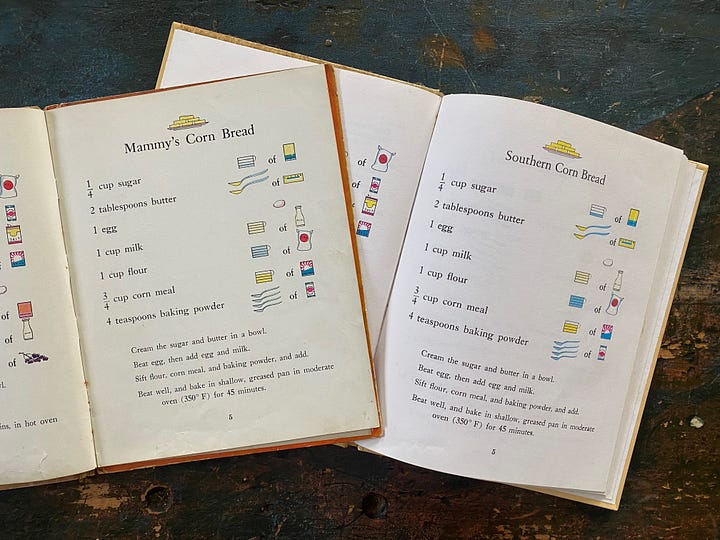 l.
ins, in hot oven
Mammy's Corn Bread
1/4 cup sugar
of
2 tablespoons butter
of
1 egg
1 cup milk
of
1 cup flour
of
3/4 cup corn meal
of
4 teaspoons baking powder
of
Cream the sugar and butter in a bowl.
Beat egg, then add egg and milk.
Sift flour, corn meal, and baking powder, and add.
Beat well, and bake in shallow, greased pan in moderate
oven (350° F) for 45 minutes.
5
of
of
of
of
Southern Corn Bread
1/4 cup sugar
of
2 tablespoons butter
of
1 egg
1 cup milk
of
1 cup flour
of
3/4 cup corn meal
of
4 teaspoons baking powder
of
Cream the sugar and butter in a bowl.
Beat egg, then add egg and milk.
Sift flour, corn meal, and baking powder, and add.
Beat well, and bake in shallow, greased pan in moderate
oven (350° F) for 45 minutes.
5